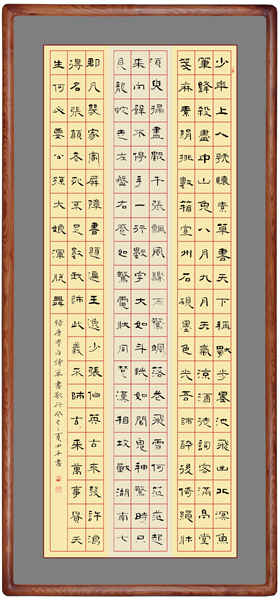 少年上人號懷素草書天下稱獨步墨池飛出北溟魚
筆鋒殺盡中山兔八月九月天氣涼酒徒詞客滿高堂
箋麻素絹排數箱宣州石硯墨色光吾師醉後倚繩床
須臾掃盡數千張飄風驟雨驚颯落花飛雪何茫茫起
來向壁不停手一行數字大如斗怳如聞鬼神驚時只
見龍蛇走左盤右蹙如驚電狀同楚漢相攻戰湖南七
郡凡幾家家屏障書題遍王逸少張伯英古來幾許浪
得名張顛老死不足數我師此義不師古來萬事貴天
生何必要公孫大娘渾脫舞
錄唐李白詩草書歌行